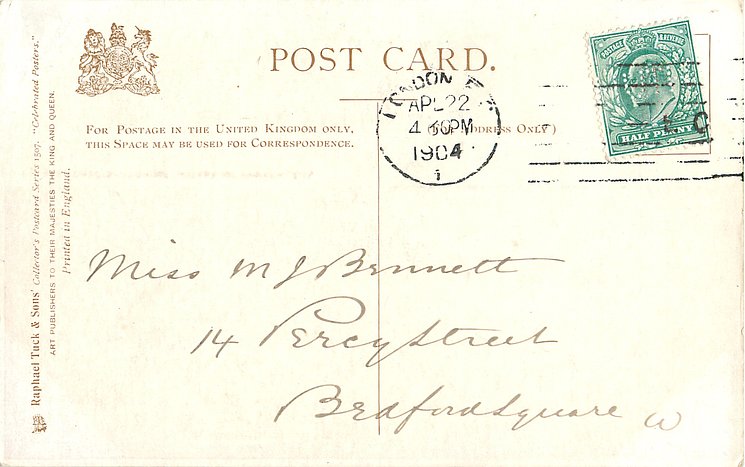 Raphael Tuck & Sons' Collector's Postcard Series 1507. "Celebrated Posters."
ART PUBLISHERS TO THEIR MAJESTIES THE KING AND QUEEN.
Printed in England.
POST CARD.
FOR POSTAGE IN THE UNITED KINGDOM ONLY,
THIS SPACE MAY BE USED FOR CORRESPONDENCE.
ADDRESS ONLY)
LONDON
APL 22
PM
1904
1
POSTAGE & REVENUE
HALF PENNY
Miss M J Bennett
14 Percy Street
Bedford Square W